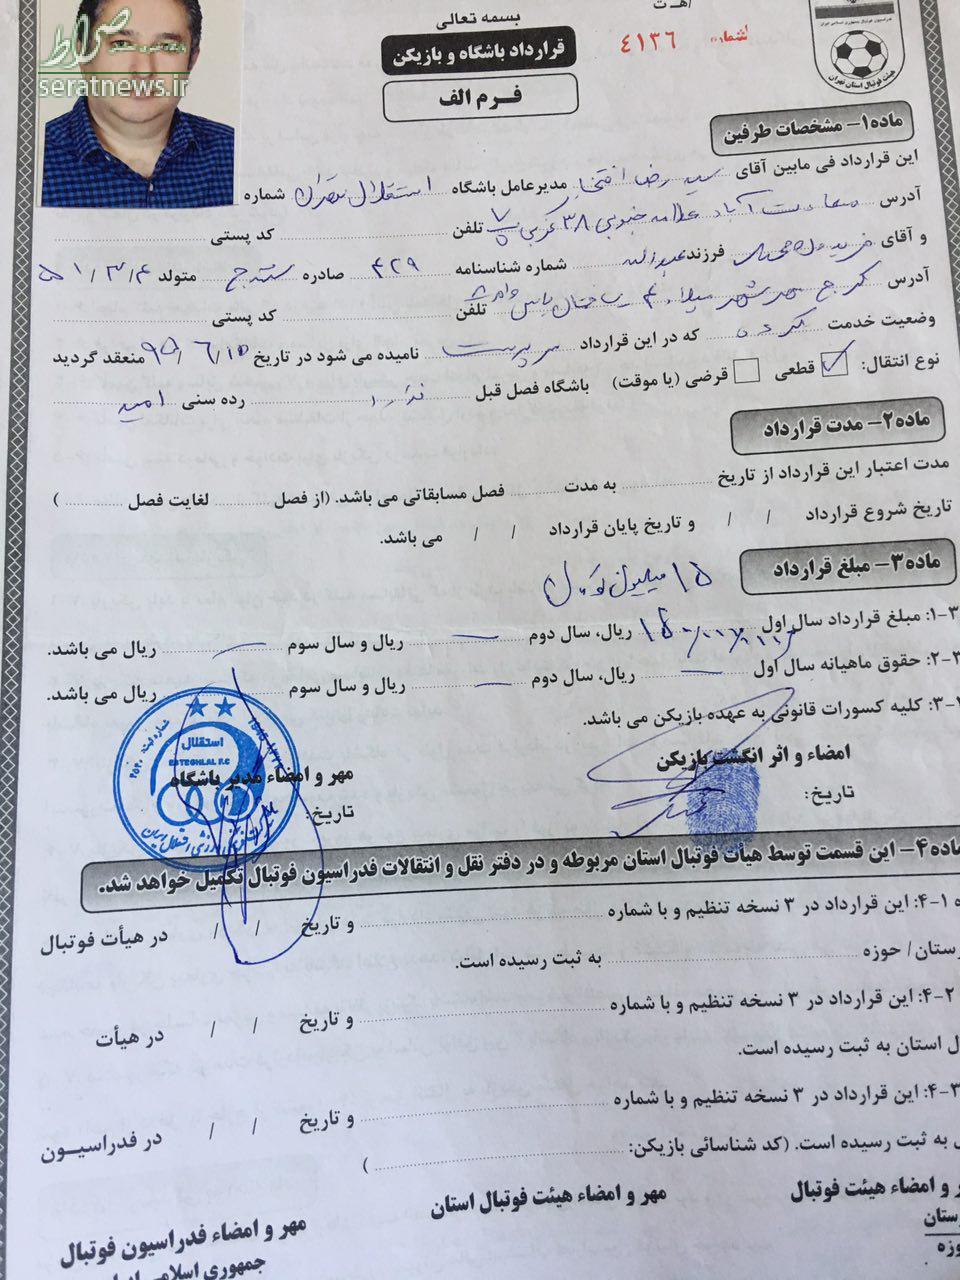 صراط
پایگاه خبری تحلیلی
seratnews.ir
بسمه تعالی
قرارداد باشگاه و بازیکن
فرم الف
شماره ۴۱۳۶
هیئت فوتبال استان تهران
ماده۱- مشخصات طرفین
این قرارداد فی مابین آقای سید رضا افتخاری مدیرعامل باشگاه استقلال تهران شماره
آدرس سعادت آباد علامه جنوبی ۳۸ غربی تلفن کد پستی
و آقای فرزند شماره شناسنامه ۴۲۹ صادره سنندج متولد ۵۱/۳/۴
آدرس کرج مهرشهر تلفن کد پستی
وضعیت خدمت کرده که در این قرارداد سرپرست نامیده می شود در تاریخ ۹۵/۶/۱۰ منعقد گردید
نوع انتقال: قطعی قرضی (یا موقت) باشگاه فصل قبل ندارد رده سنی امید
ماده۲- مدت قرارداد
مدت اعتبار این قرارداد از تاریخ به مدت فصل مسابقاتی می باشد. (از فصل لغایت فصل )
تاریخ شروع قرارداد / / و تاریخ پایان قرارداد / / می باشد.
ماده۳- مبلغ قرارداد
۱۵ میلیون تومان
۳-۱: مبلغ قرارداد سال اول ریال، سال دوم — ریال و سال سوم — ریال می باشد.
۳-۲: حقوق ماهیانه سال اول — ریال، سال دوم — ریال و سال سوم ریال می باشد.
۳-۳: کلیه کسورات قانونی به عهده بازیکن می باشد.
امضاء و اثر انگشت بازیکن
مهر و امضاء مدیر باشگاه
تاریخ:
تاریخ:
استقلال
ESTEGHLAL F.C
ماده۴- این قسمت توسط هیأت فوتبال استان مربوطه و در دفتر نقل و انتقالات فدراسیون فوتبال تکمیل خواهد شد.
۴-۱: این قرارداد در ۳ نسخه تنظیم و با شماره و تاریخ / / در هیأت فوتبال
رستان/ حوزه به ثبت رسیده است.
۴-۲: این قرارداد در ۳ نسخه تنظیم و با شماره و تاریخ / / در هیأت
ل استان به ثبت رسیده است.
۴-۳: این قرارداد در ۳ نسخه تنظیم و با شماره و تاریخ / / در فدراسیون
ل به ثبت رسیده است. (کد شناسائی بازیکن: )
و امضاء هیئت فوتبال
رستان
حوزه
مهر و امضاء هیئت فوتبال استان
مهر و امضاء فدراسیون فوتبال
جمهوری اسلامی ایران